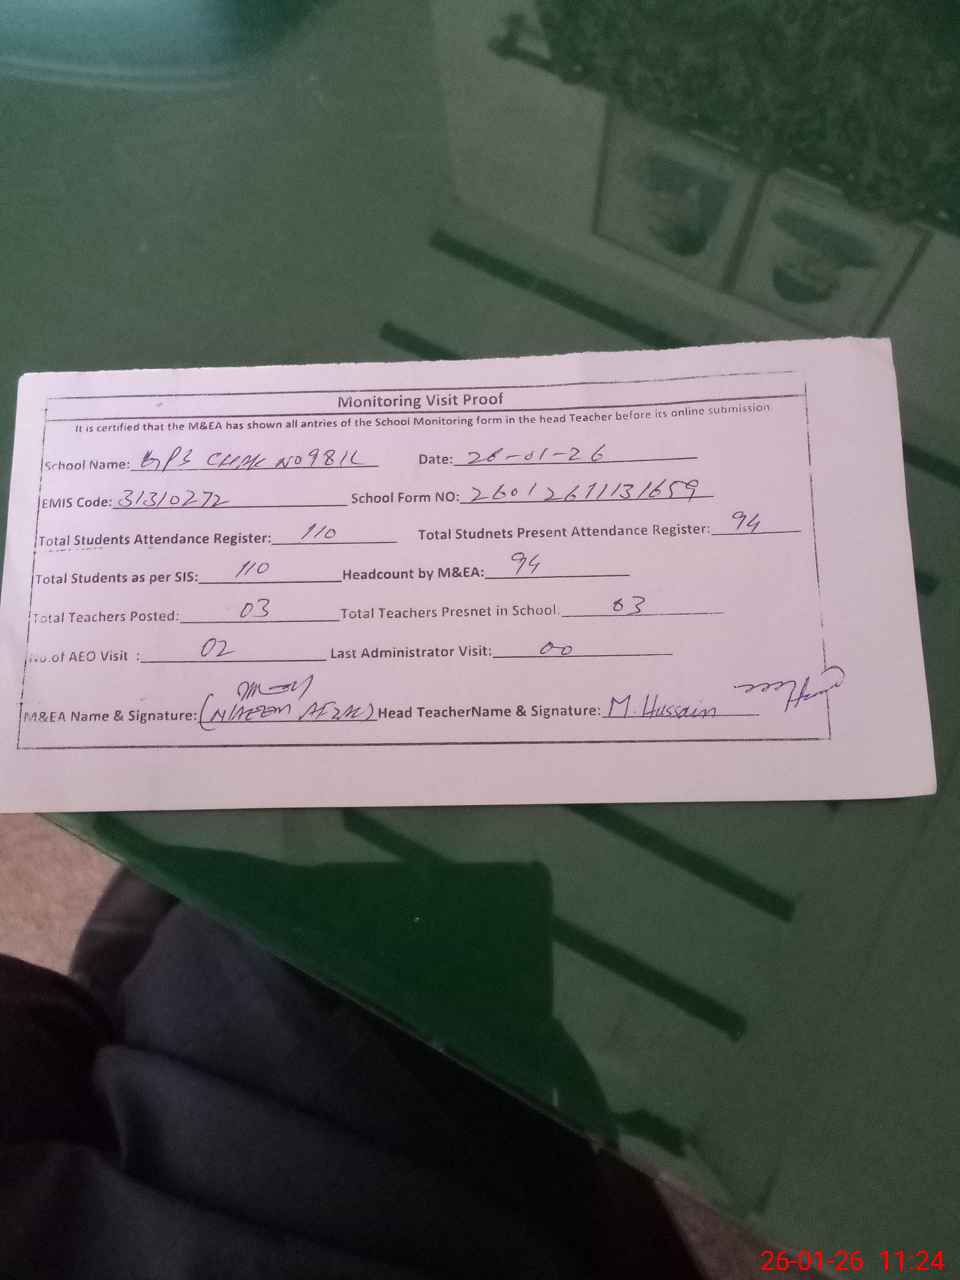 Monitoring Visit Proof
It is certified that the M&EA has shown all antries of the School Monitoring form in the head Teacher before its online submission
School Name: GPS CHAK NO 98 1L Date: 26-01-26
EMIS Code: 31310272 School Form NO: 26012611131659
Total Students Attendance Register: 110 Total Studnets Present Attendance Register: 94
Total Students as per SIS: 110 Headcount by M&EA: 94
Total Teachers Posted: 03 Total Teachers Presnet in School. 03
No.of AEO Visit : 02 Last Administrator Visit: 00
M&EA Name & Signature: (NAEEM AFZAL) Head TeacherName & Signature: M. Hussain
26-01-26 11:24